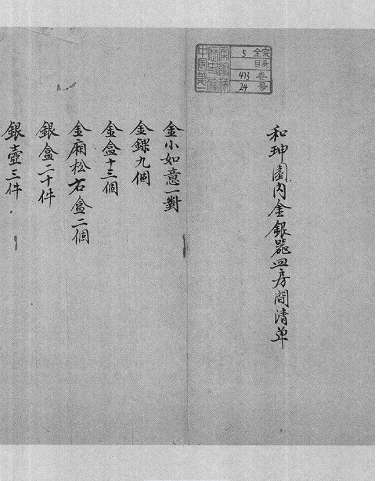 和珅園內金銀器皿房間清单
金小如意一對
金錁九個
金盒十三個
金廂松石盒二個
銀盒二十件
銀壺三件
全宗 5
目錄
卷 413
號 24